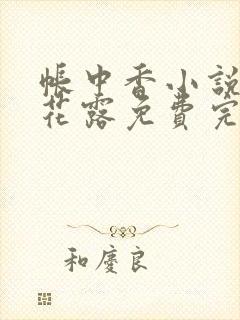 帳中香小說
花露免費完
和慶良